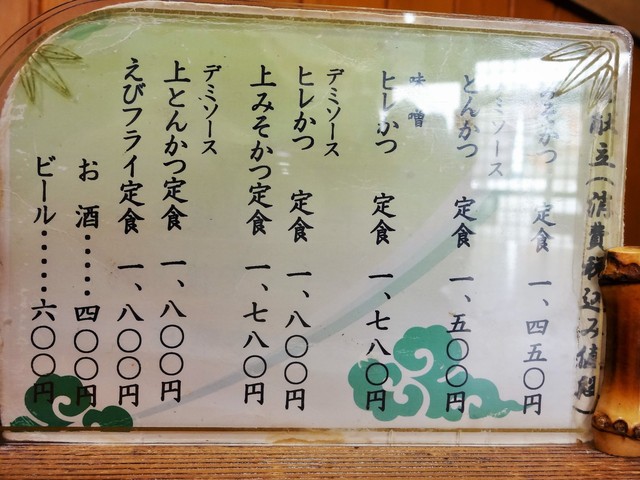 献立(消費税込み値段)
みそかつ 定食 一、四五〇円
デミソース
とんかつ 定食 一、五〇〇円
味噌
ヒレかつ 定食 一、七八〇円
デミソース
ヒレかつ 定食 一、八〇〇円
上みそかつ定食 一、七八〇円
デミソース
上とんかつ定食 一、八〇〇円
えびフライ定食 一、八〇〇円
お酒・・・・・四〇〇円
ビール・・・・・六〇〇円